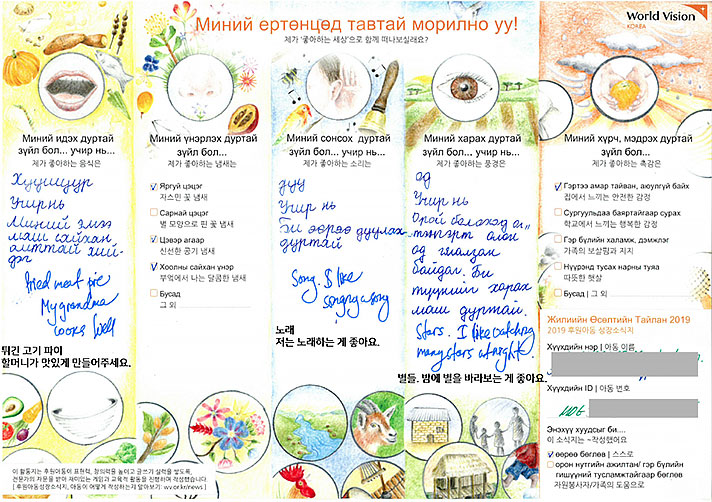 Миний ертөнцөд тавтай морилно уу!
제가 '좋아하는 세상'으로 함께 떠나보실래요?
World Vision
KOREA
Миний идэх дуртай
зүйл бол... учир нь...
제가 좋아하는 음식은
Хуушуур
Учир нь
Миний эмээ
маш сайхан
амттай хий-
дэг
fried meat pie
My grandma
cooks well
튀긴 고기 파이
할머니가 맛있게 만들어주세요.
Миний үнэрлэх дуртай
зүйл бол...
제가 좋아하는 냄새는
Яргуй цэцэг
자스민 꽃 냄새
Сарнай цэцэг
별 모양으로 핀 꽃 냄새
Цэвэр агаар
신선한 공기 냄새
Хоолны сайхан үнэр
부엌에서 나는 달콤한 냄새
Бусад
그 외
Миний сонсох дуртай
зүйл бол... учир нь...
제가 좋아하는 소리는
дуу
Учир нь
Би өөрөө дуулах
дуртай
Song. I like
singing a song
노래
저는 노래하는 게 좋아요.
Миний харах дуртай
зүйл бол... учир нь...
제가 좋아하는 풍경은
од
Учир нь
Орой болоход
тэнгэрт олон
од гялалзан
байдаг. Би
түүнийг харах
маш дуртай.
Stars. I like watching
many stars at night.
별들. 밤에 별을 바라보는 게 좋아요.
Миний хүрч, мэдрэх дуртай
зүйл бол...
제가 좋아하는 촉감은
Гэртээ амар тайван, аюулгүй байх
집에서 느끼는 안전한 감정
Сургуульдаа баяртайгаар сурах
학교에서 느끼는 행복한 감정
Гэр бүлийн халамж, дэмжлэг
가족의 보살핌과 지지
Нүүрэнд тусах нарны туяа
따뜻한 햇살
Бусад | 그 외
Жилийн Өсөлтийн Тайлан 2019
2019 후원아동 성장소식지
Хүүхдийн нэр | 아동 이름
Хүүхдийн ID | 아동 번호
Энэхүү хуудсыг би....
이 소식지는 ~작성했어요
өөрөө бөглөв | 스스로
орон нутгийн ажилтан/ гэр бүлийн
гишүүний тусламжтайгаар бөглөв
자원봉사자/가족의 도움으로
이 활동지는 후원아동이 표현력, 창의력을 높이고 글쓰기 실력을 쌓도록,
전문가의 자문을 받아 재미있는 게임과 교육적 활동을 진행하며 작성했습니다.
[후원아동성장소식지, 아동이 어떻게 작성하는지 알아보기: wv.or.kr/news]